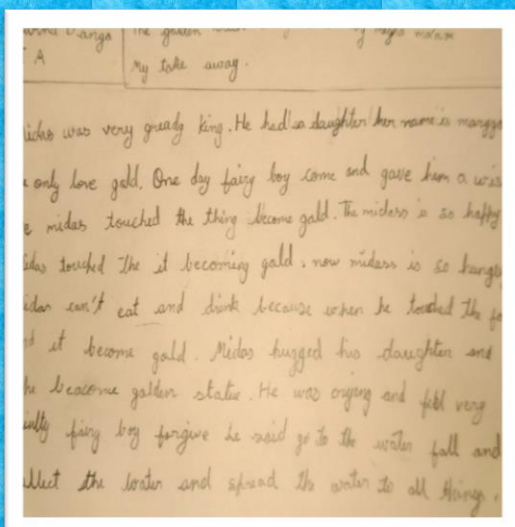 The golden
A
My take away.
was very gready king. He had a daughter her name is
only love gold. One day fairy boy come and gave him a
midas touched the thing become gold. The midass is so happy
touched the it becoming gold. now midass is so
can't eat and drink because when he touched the
it become gold. Midas hugged his daughter and
beacome golden statue. He was crying and feel very
fairy boy forgive he said go to the water fall and
the water and spread the water to all things.